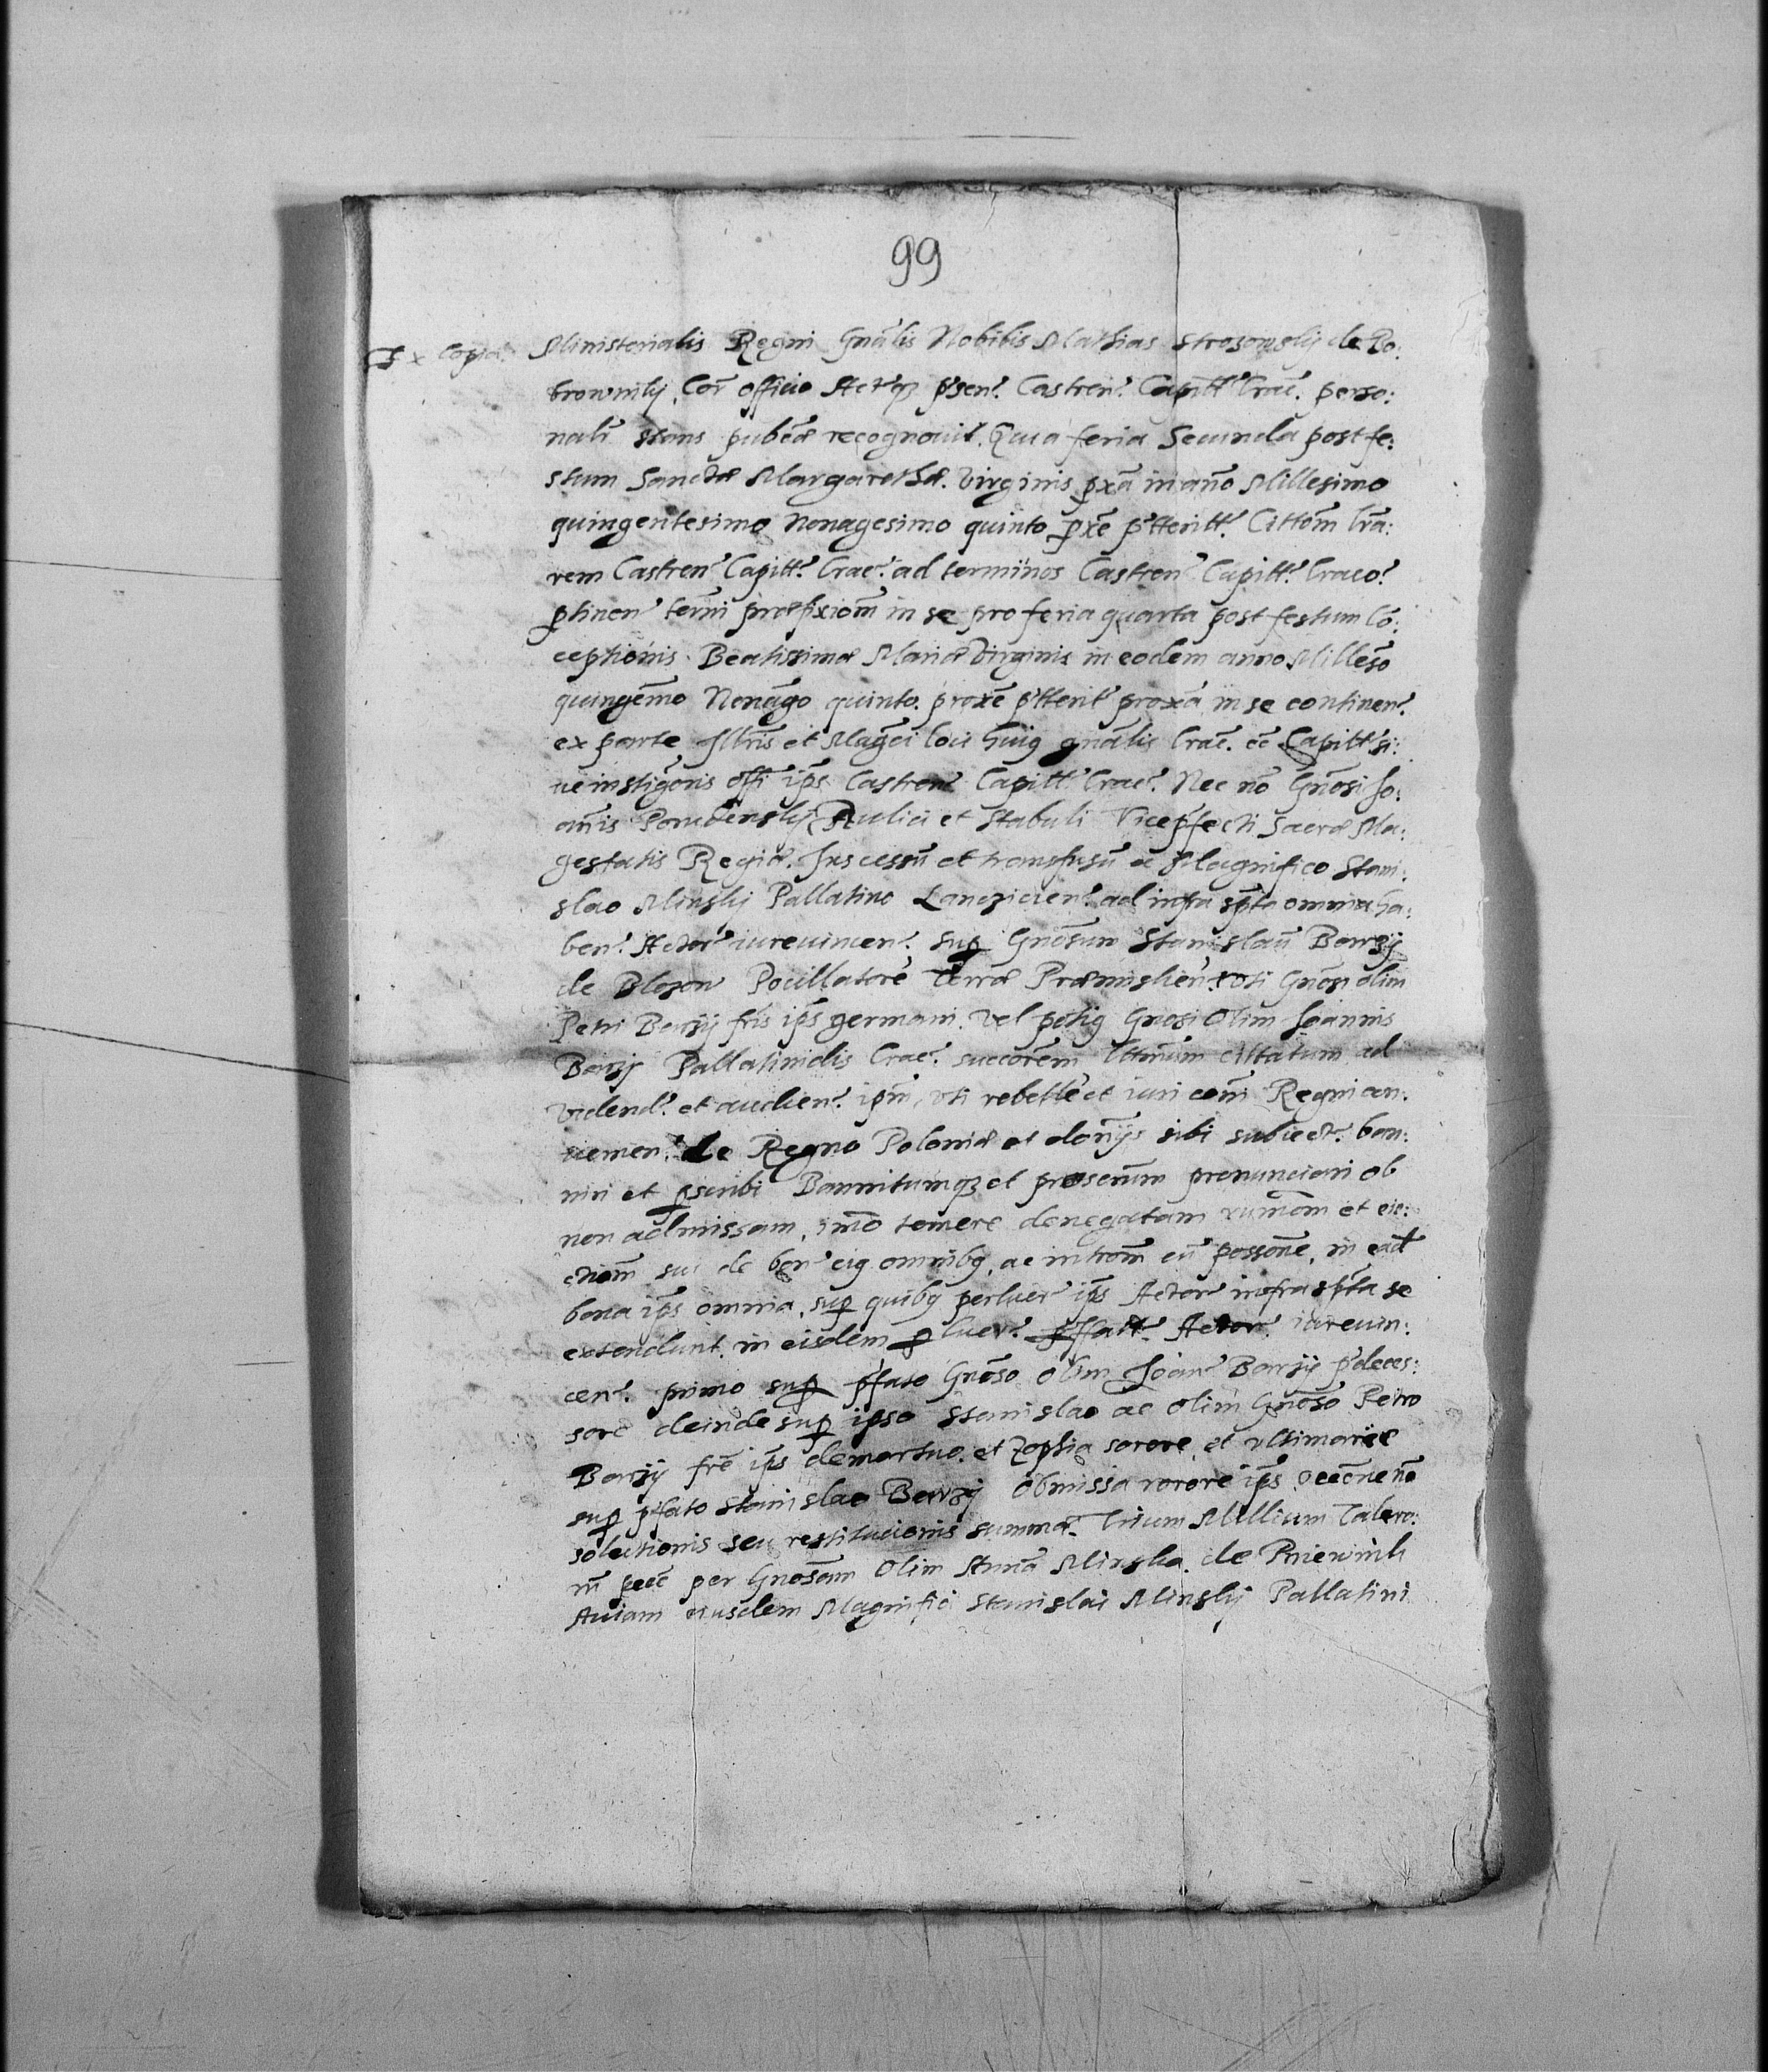 99
Ex Copia
Ministerialis Regni Gnãlis Nobilis Mathias Strosowskj de Do:
browniki, Cor̃ officio Actisq; p̃sen: Castren: Capitt: Crac: perso:
nalr̃ stans publcæ recognovit. Quia feria Secunda post fe:
stum Sanctæ Margarethæ Virginis pxã in año Millesimo
quingentesimo Nonagesimo quinto pxẽ p̃tterit: Cittom̃ lrã:
rem Castren: Capitt: Crac: ad terminos Castren: Capitt: Craco:
ptinen term̃i præfixiom̃ in se pro feria quarta post festum Cõ:
ceptionis Beatissimæ Mariæ Virginis in eodem anno Millesõ
quingem̃o Nonãgo quinto proxẽ p̃tterit proxã in se continen:
ex parte Illr̃is et Magc̃i loci huig gnãlis Crac: Capitt: si:
ve instigõris offi ip̃s Castren Capitt: Crac: Nec nõ Gnõsi Jo:
annis Aulici et Stabuli Vicep̃fecti Sacræ Ma:
gestatis Regiæ. Jus cessũ et transfusũ a Magnifico Stani:
slao Minskj Pallatino Lancicien: ad infra sp̃ta omnia ha:
ben: Actor iurevincen: sup Gnõsum Stanislaũ Barzj
de Blozow Pocillatorẽ terræ Præmislien: uti Gnõsi olim
Petri Barzij fr̃is ip̃s germani. vel potig Gnosi Olim Joannis
Barzj Pallatinidis Crac: succorem̃ lttim̃um cittatum ad
videnđ: et audien: ip̃m, uti rebellẽ et iuri com̃i Regni con:
uemen: de Regno Poloniæ et dom̃ijs sibi subiect: ban:
niri et pscribi Bannitumq; et proscr̃um pronunciari ob
non admissam, im̃o temere denegatam rumom̃ et eie:
ctiom̃ sui de bon eig omnibg, ac introm̃ eũ possone, in eađ
bona ip̃s omnia, sup quibg perluer ip̃s Actor infra sp̃ta se
extendunt in eisdem p lucr: p̃fatt: Actor: iurevin:
cen: primo sup p̃fato Gnõso olim Joan Barzij p̃deces:
sore deinde sup ipso Stanislao ac olim Gnõso Petro
Barzij frẽ ip̃s demortuo et Zophia sorore, et ultimariee
sup p̃fato Stanislao Barzj obmissa rorore ip̃s
solutionis seu restitucionis summæ Trium Millium Talero:
m̃ pecc̃ per Gnosam̃ Olim Annã Minska de Pniewnik
Auiam eiusdem Magnifici Stanislai Minskj Pallatini